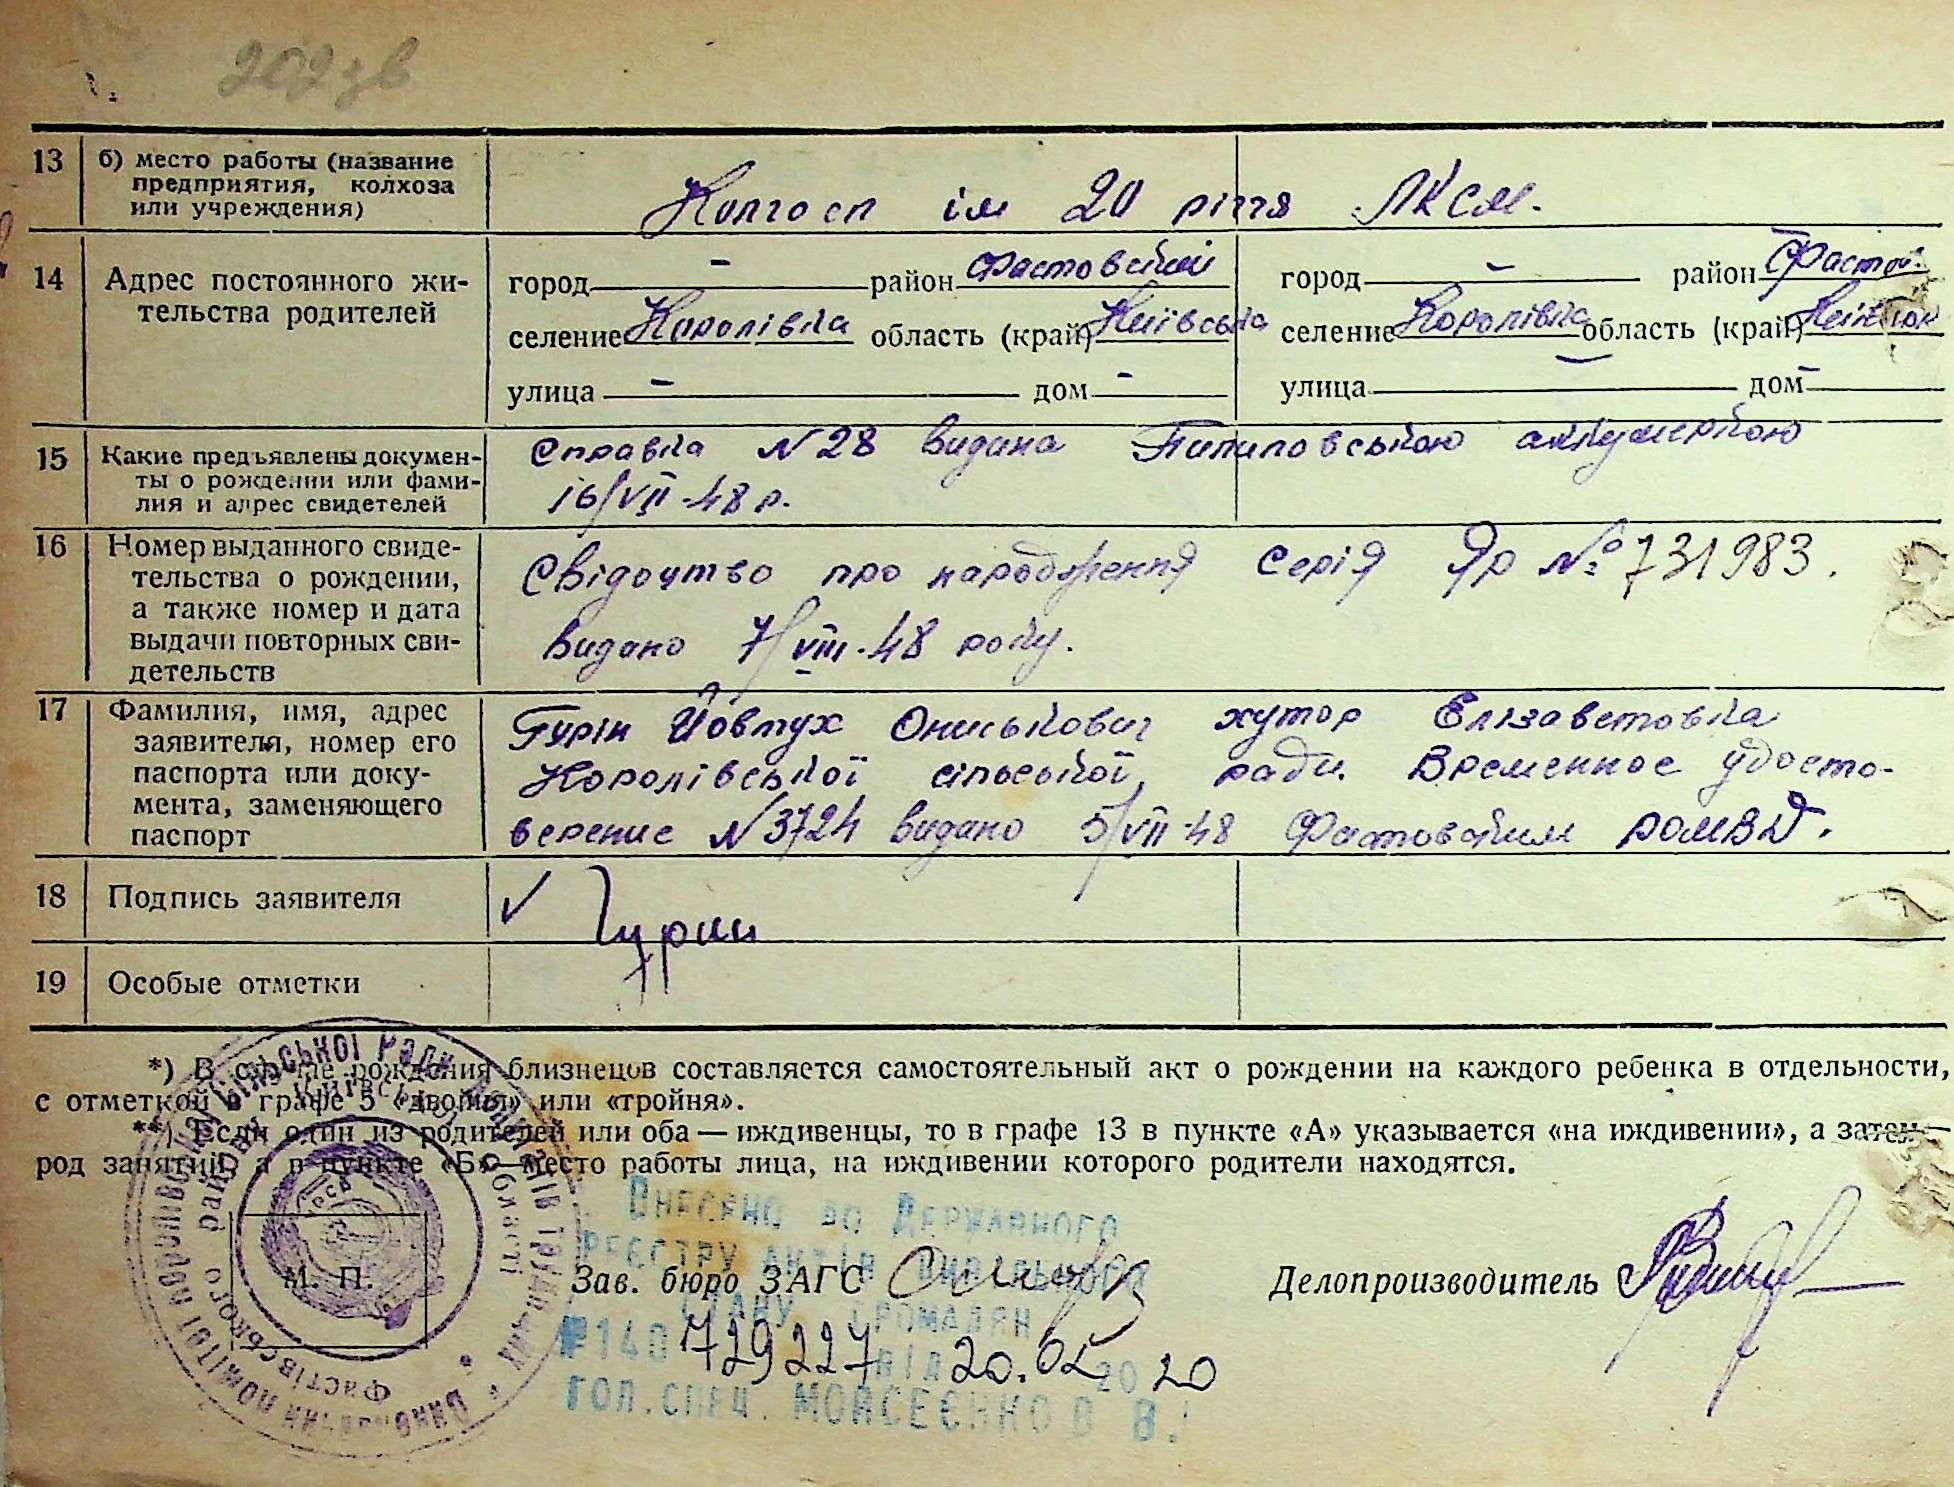 13 б) место работы (название предприятия, колхоза или учреждения)
Колгосп ім 20 річчя ЛКСМ.
14 Адрес постоянного жительства родителей
город — район Фастовський
селение Королівка область (край) Київська
улица — дом —
город — район Фастов.
селение Королівка область (край)
улица — дом —
15 Какие предъявлены документы о рождении или фамилия и адрес свидетелей
Справка N 28 видана Пилиповською акушеркою
16/VII-48 р.
16 Номер выданного свидетельства о рождении, а также номер и дата выдачи повторных свидетельств
Свідоцтво про народження Серія Яр № 731983.
видано 7/VIII-48 року.
17 Фамилия, имя, адрес заявителя, номер его паспорта или документа, заменяющего паспорт
Гурін Йовтух Ониськович хутор Елізаветовка
Королівської сільської ради. Временное удосто-
верение N 3724 видано 5/VII-48 Фастовским РОМВД.
18 Подпись заявителя
✓ Гурин
19 Особые отметки
*) В случае рождения близнецов составляется самостоятельный акт о рождении на каждого ребенка в отдельности,
с отметкой в графе 5 «двойня» или «тройня».
**) Если один из родителей или оба — иждивенцы, то в графе 13 в пункте «А» указывается «на иждивении», а затем —
род занятий, а в пункте «Б» — место работы лица, на иждивении которого родители находятся.
Внесено до Державного
реєстру актів цивільного
стану громадян
№ 140 729227 від 20.05 2020
Гол. спец. Моісеєнко В.
М. П.
Зав. бюро ЗАГС
Делопроизводитель
Виконавчий комітет Королівської сільської Ради депутатів трудящих
Фастівського району Київської області
УРСР